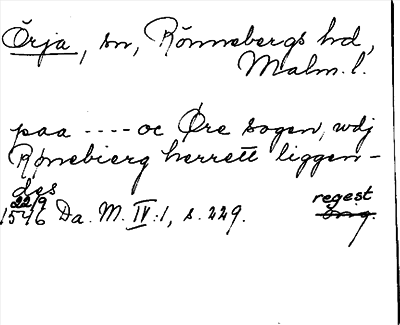 Örja, sn, Rönnebergs hd,
Malm. l.
paa ---- oc Øre sogen, wdj
Rønebierg herrett liggen-
des
22/9
1546 Da. M. IV:1, s. 229.
regest
orig.